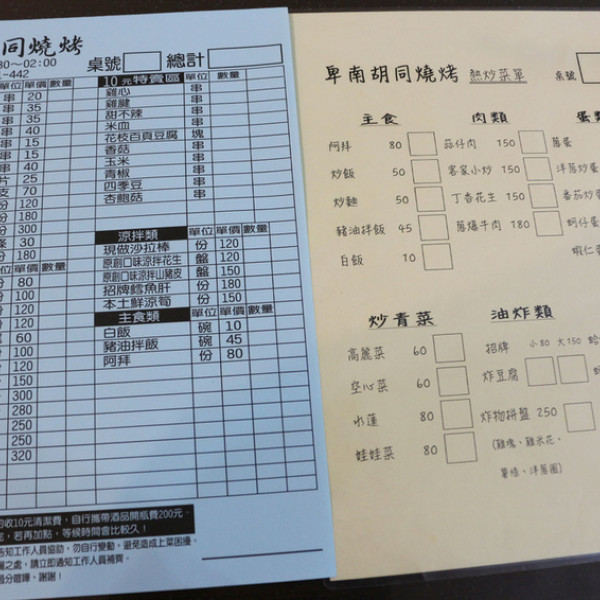 同燒烤
30～02:00
-442
桌號
總計
單位 單價 數量
串 20
串 35
串 35
串 40
串 15
串 15
串 40
片 25
支 70
份 120
份 180
份 300
條 30
份 180
單位 單價 數量
份 80
份 100
120
120
60
100
150
300
280
250
250
320
10元特賣區 單位 數量
雞心 串
雞腱 串
甜不辣 串
米血 串
花枝百頁豆腐 塊
香菇 串
玉米 串
青椒 串
四季豆 串
杏鮑菇 串
涼拌類 單位 單價 數量
現做沙拉棒 份 120
原創口味涼拌花生 盤 120
原創口味涼拌山豬皮 盤 150
招牌鱈魚肝 份 180
本土鮮涼筍 份 150
主食類 單位 單價 數量
白飯 碗 10
豬油拌飯 碗 45
阿拜 份 80
收10元清潔費，自行攜帶酒品開瓶費200元。
，若再加點，等候時間會比較久！
告知工作人員協助，勿自行變動，避免造成上菜困擾。
之處，請立即通知工作人員補齊。
過分喧嘩，謝謝！
卑南胡同燒烤 熱炒菜單 桌號
主食
阿拜 80
炒飯 50
炒麵 50
豬油拌飯 45
白飯 10
肉類
蒜仔肉 150
客家小炒 150
丁香花生 150
蔥爆牛肉 180
蛋類
蔥蛋
洋蔥炒蛋
番茄炒蛋
蚵仔蛋
蝦仁
炒青菜
高麗菜 60
空心菜 60
水蓮 80
娃娃菜 80
油炸類
招牌 小80 大150
炸豆腐
炸物拼盤 250
(雞塊、雞米花、
薯條、洋蔥圈)